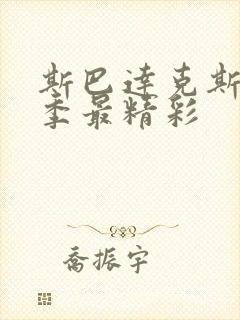 斯巴达克斯
季最精彩
乔振宇